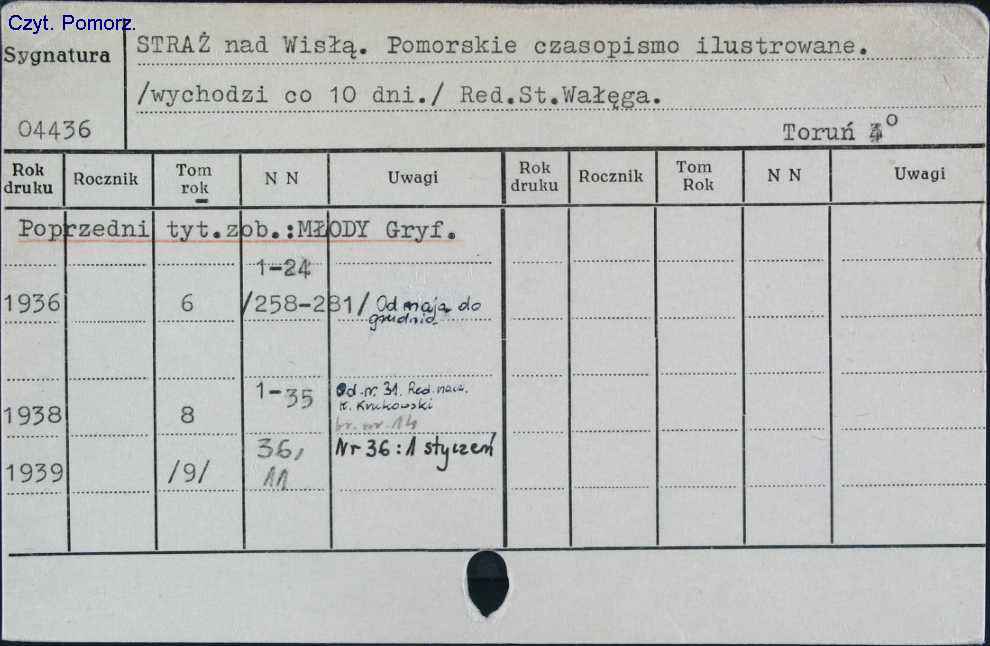 Czyt. Pomorz.
Sygnatura
STRAŻ nad Wisłą. Pomorskie czasopismo ilustrowane.
/wychodzi co 10 dni./ Red.St.Wałęga.
04436
Toruń 4°
Rok druku Rocznik Tom rok N N Uwagi Rok druku Rocznik Tom Rok N N Uwagi
Poprzedni tyt.zob.:MŁODY Gryf.
1-24
1936 6 /258-281/ Od maja do
grudnia
1-35 Od nr. 31. Red. nacz.
K. Krukowski
1938 8 br. nr. 14
36, Nr 36: 1 styczeń
1939 /9/ 11